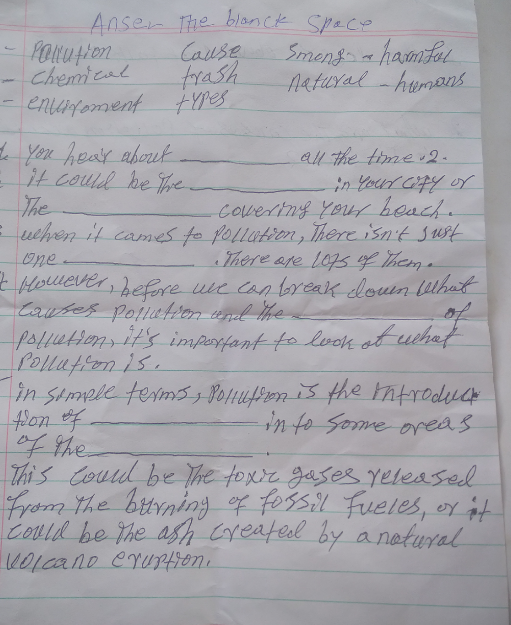 Anser The blanck Space
- Pollution Cause Smong - harmful
- Chemical trash natural - humans
- enviroment types
You hear about ______ all the time.2.
it could be The ______ in your city or
The ______ covering your beach.
when it cames to pollution, There isn't Just
one ______ . There are lots of Them.
However, before we can break down what
causes pollution and the ______ of
pollution, it's important to look at what
Pollution is.
in simple terms, Pollution is the introduc
tion of ______ in to some areas
of the ______ .
This could be The toxic gases released
from The burning of fossil fueles, or it
could be The ash created by a natural
volcano eruption.